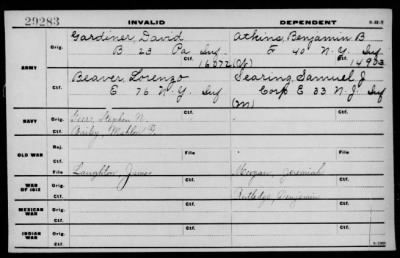 29283 INVALID DEPENDENT
Gardiner, David Atkins, Benjamin B
Orig. B 23 Pa Inf F 40 N.Y. Inf
Ctf. 16072 (Cf) Ctf. 14953
ARMY
Beaver, Lorenzo Searing, Samuel J
Orig. E 76 N.Y. Inf Corp E 33 N.J. Inf
Ctf. (M)
NAVY Orig. Geer, Stephen N.
Ctf.
OLD WAR Inj.
File File
Ctf.
WAR OF 1812 Orig. Laughton, James Morgan, Jeremiah
Ctf. Rutledge, Benjamin
MEXICAN WAR Orig.
Ctf.
INDIAN WAR Orig.
Ctf.